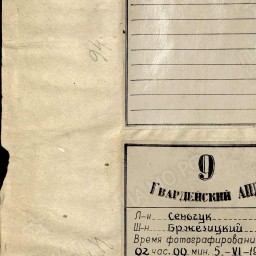 94.
9
Гвардейский АП
Л-н Сеногук
Ш-н Бржезицкий
Время фотографировани
02 час. 00 мин. 5.-VI-19